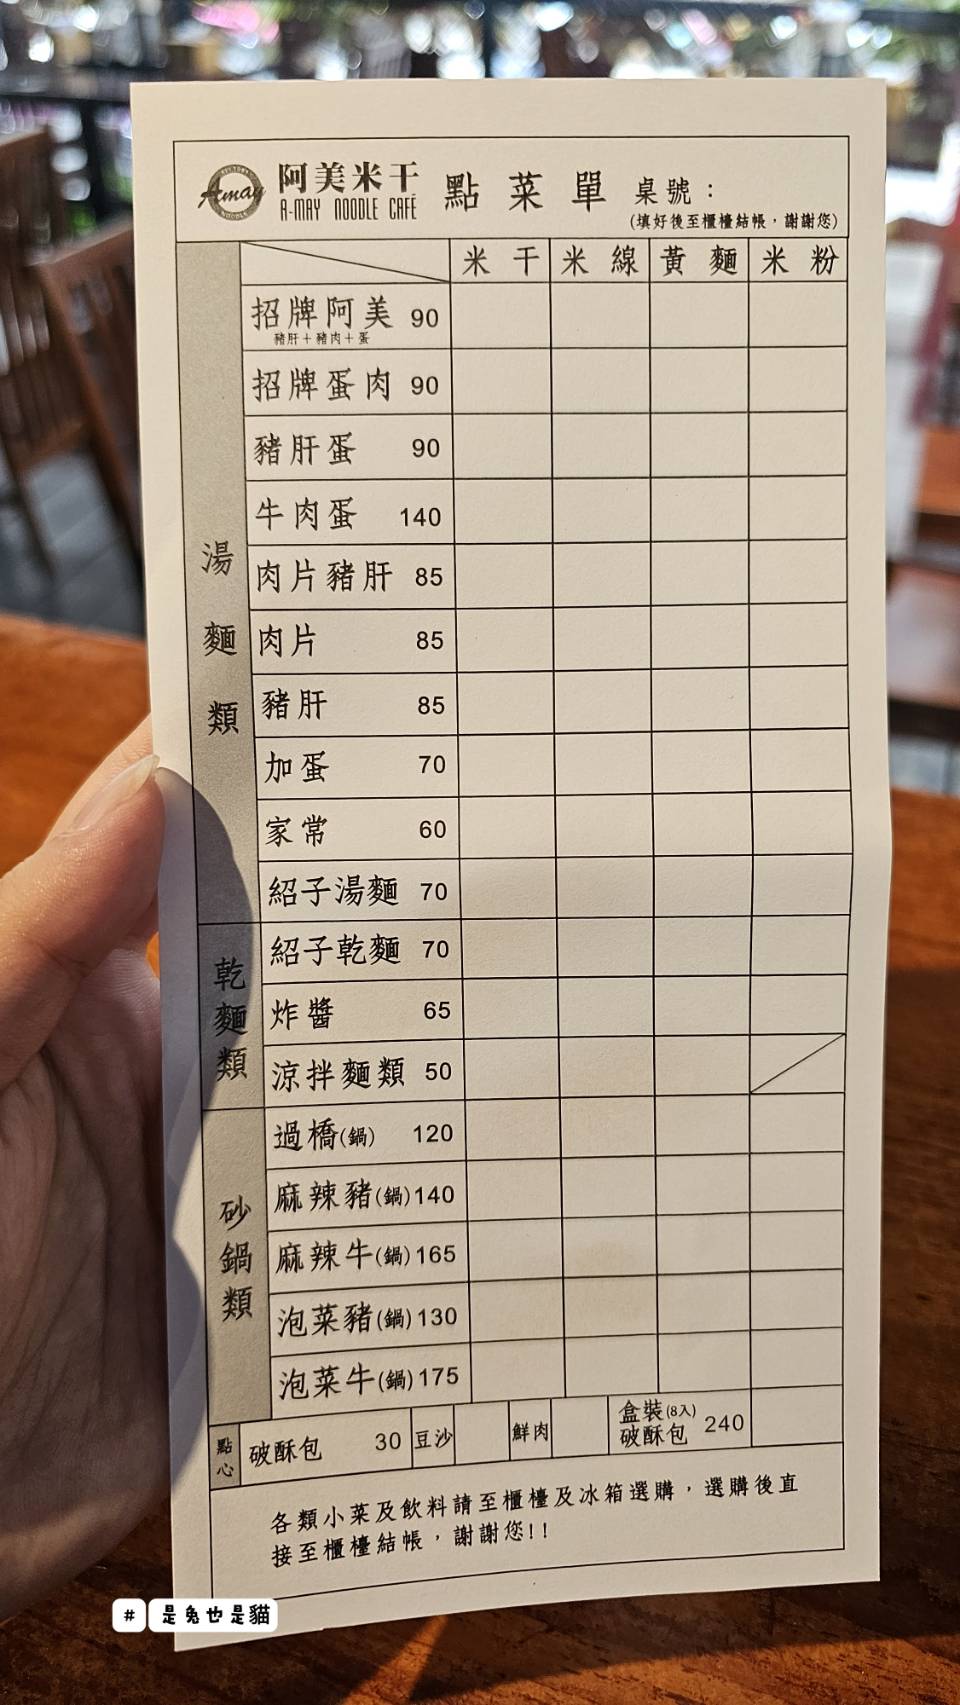 Amay
NOODLE
阿美米干
A-MAY NOODLE CAFÉ
點菜單
桌號：
(填好後至櫃檯結帳，謝謝您)
米干 米線 黃麵 米粉
湯麵類
招牌阿美 90
豬肝＋豬肉＋蛋
招牌蛋肉 90
豬肝蛋 90
牛肉蛋 140
肉片豬肝 85
肉片 85
豬肝 85
加蛋 70
家常 60
紹子湯麵 70
乾麵類
紹子乾麵 70
炸醬 65
涼拌麵類 50
砂鍋類
過橋(鍋) 120
麻辣豬(鍋)140
麻辣牛(鍋)165
泡菜豬(鍋)130
泡菜牛(鍋)175
點心
破酥包 30 豆沙 鮮肉
盒裝(8入)
破酥包 240
各類小菜及飲料請至櫃檯及冰箱選購，選購後直
接至櫃檯結帳，謝謝您!!
# 是兔也是貓